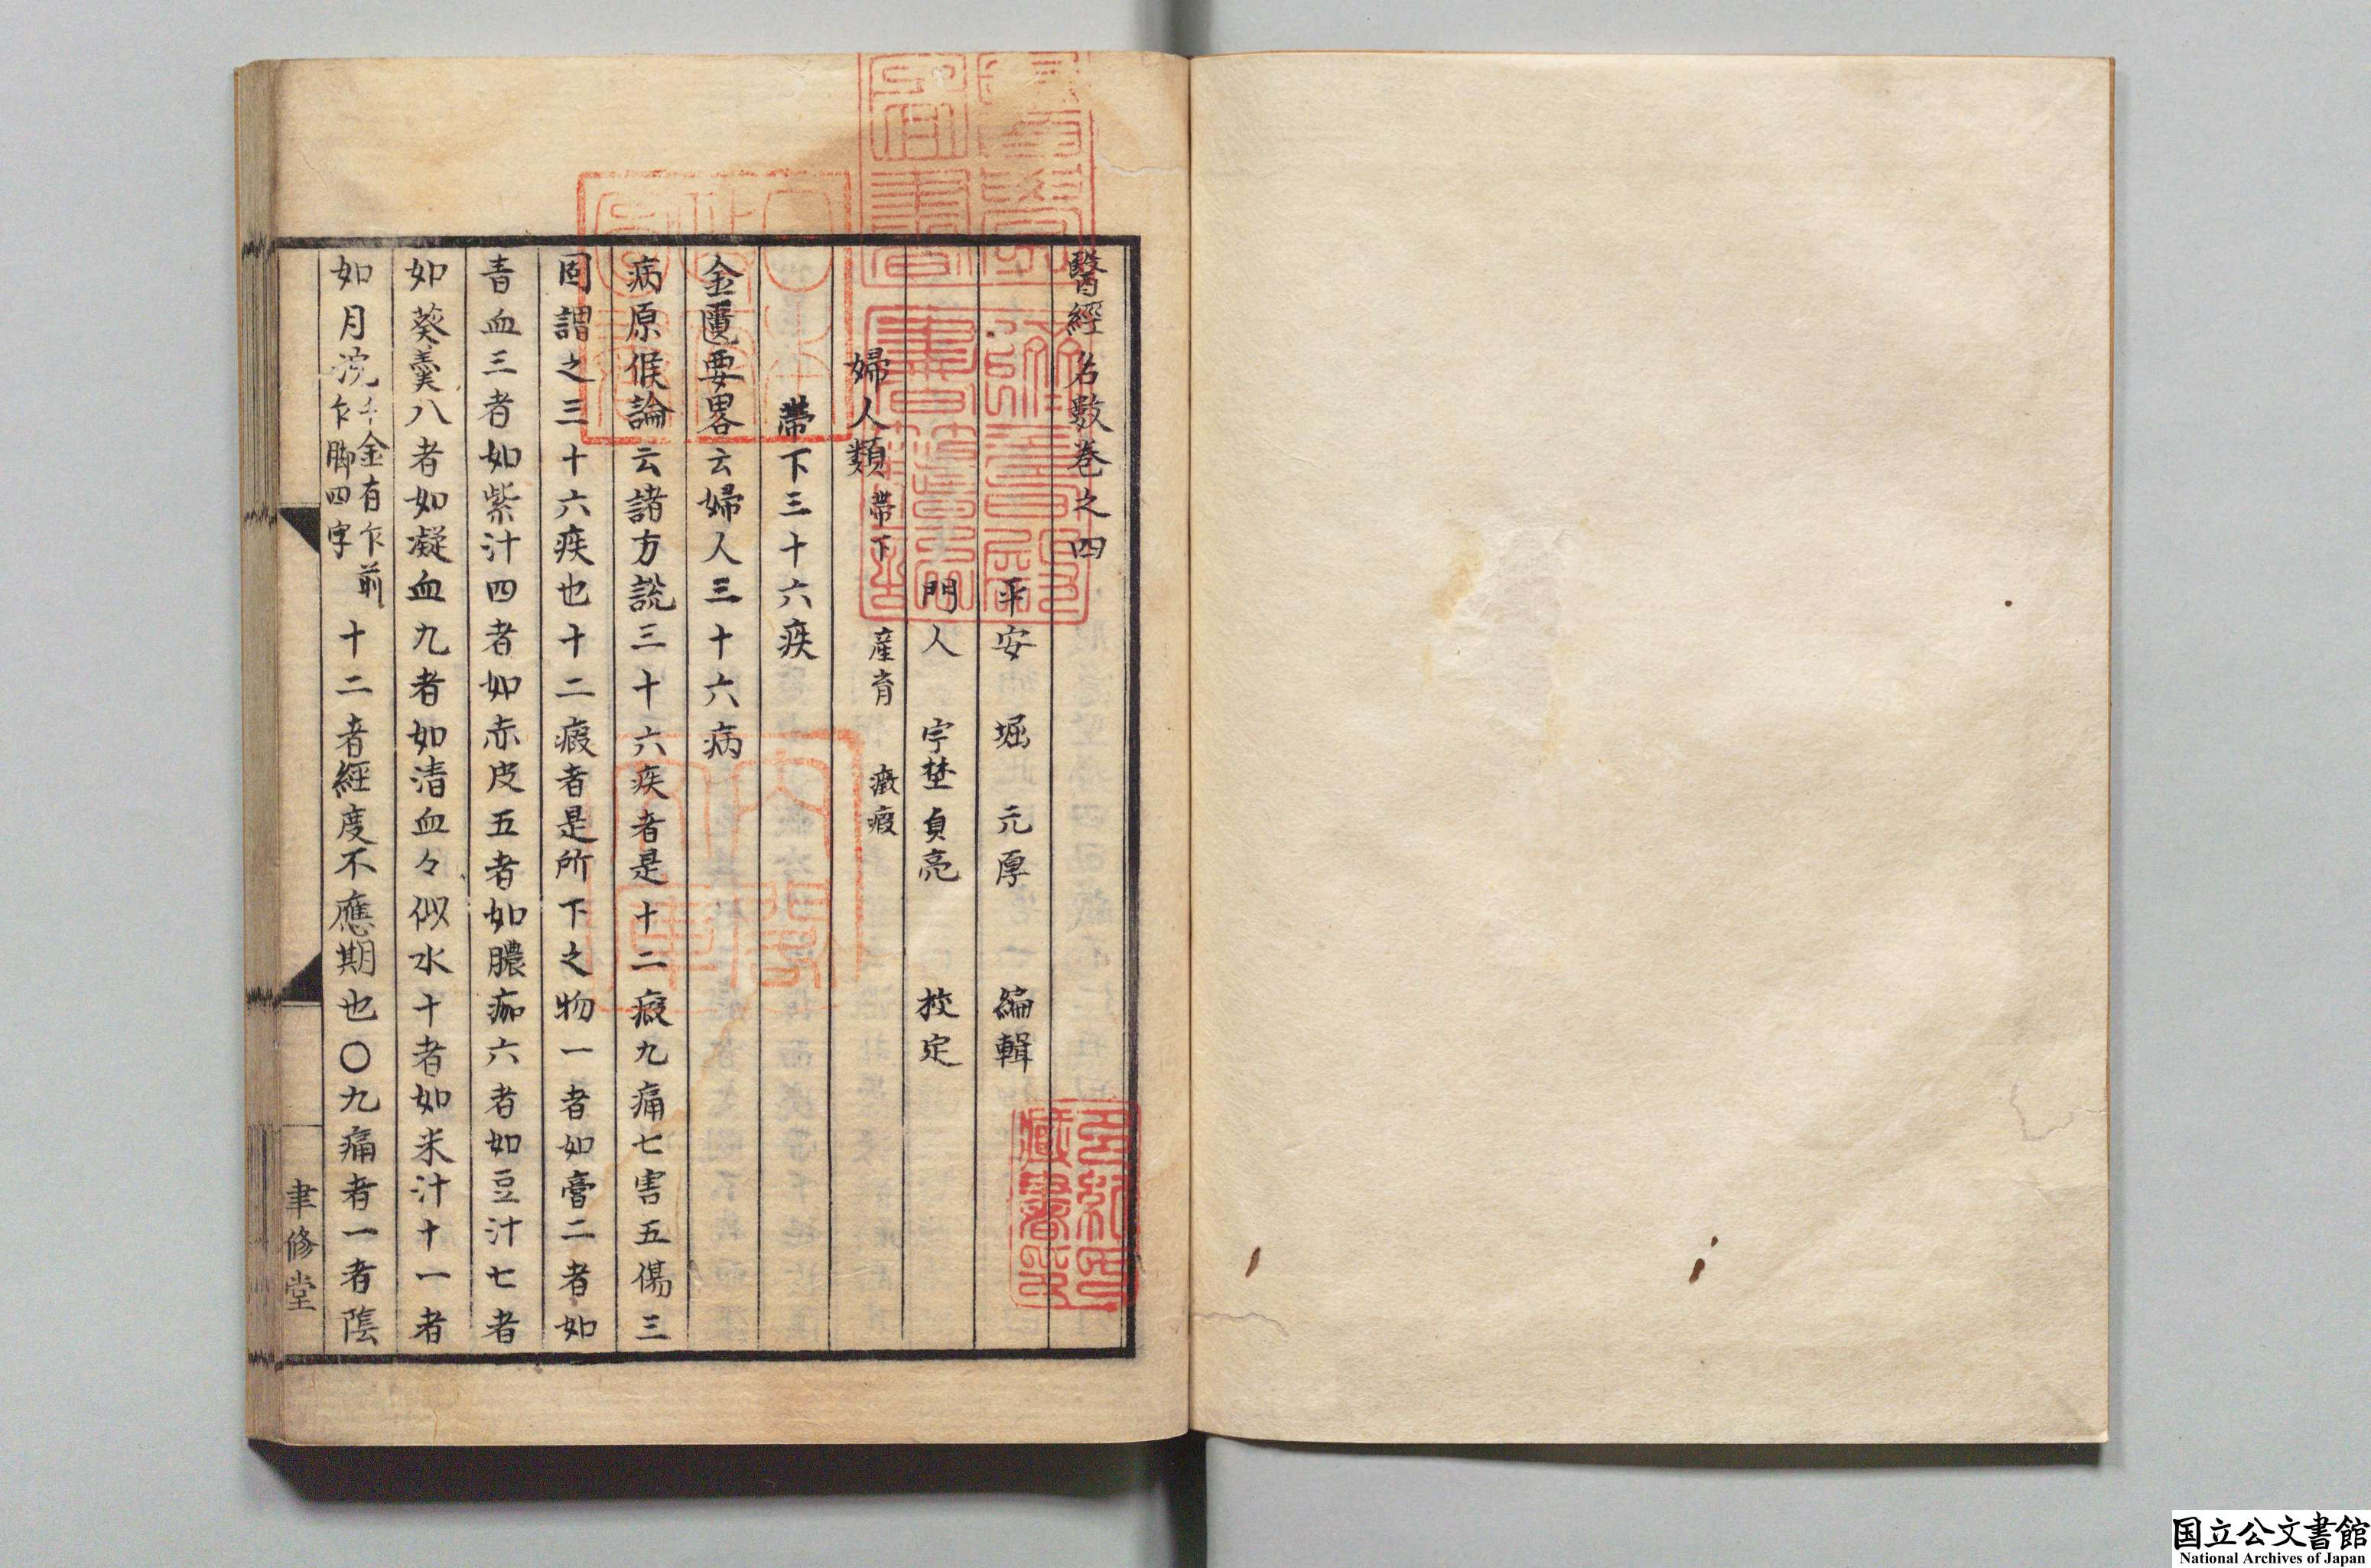 醫經名數卷之四
平安 堀 元厚 編輯
門人 宇埜貞亮 校定
婦人類 帶下 產育 癥瘕
帶下三十六疾
金匱要畧云婦人三十六病
病原候論云諸方說三十六疾者是十二瘕九痛七害五傷三
固謂之三十六疾也十二瘕者是所下之物一者如膏二者如
青血三者如紫汁四者如赤皮五者如膿痂六者如豆汁七者
如葵羹八者如凝血九者如清血々似水十者如米汁十一者
如月浣千金有乍前乍脚四字十二者經度不應期也〇九痛者一者陰
聿修堂
国立公文書館
National Archives of Japan